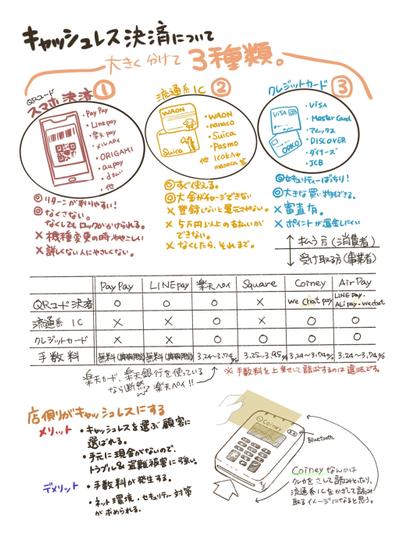 キャッシュレス決済について
大きく分けて3種類。
QRコード
スマホ決済①
・PayPay
・LINEpay
・楽天pay
・メルペイ
・ORIGAMI
・aupay
・d払い
・他
流通系IC②
WAON
・WAON
・nanaco
・Suica
・Pasmo
Suica
クレジットカード③
VISA
・VISA
・MasterCard
・アメックス
・DISCOVER
・ダイナース
・JCB
◎リターンが割りやすい!
◎なくさない。
なくしてもロックがかけられる。
×機種変更の時ややこしい
×詳しくない人にやさしくない。
◎すぐ使える。
◎大金がチャージできない
×登録しないと還元されない。
×5万円以上の支払いができない。
×なくしたら、それまで。
◎セキュリティーばっちり!
◎大きな買い物できる。
×審査有。
×ポイントが還元しにくい
↑払う方(消費者)
↓受け取る方(事業者)
PayPay LINEpay 楽天ペイ Square Coiney AirPay
QRコード決済 ○ ○ ○ × wechatpay LINEpay・Alipay・wechat
流通系IC × × ○ ○ ○ ○
クレジットカード × × ○ ○ ○ ○
手数料 3.24~3.74% 3.25~3.95% 3.24~3.74% 3.24~3.74%
楽天カード、楽天銀行を使っている
なら断然楽天ペイ!!
※手数料を上乗せして請求するのは違法です。
店側がキャッシュレスにする
メリット・キャッシュレスを選ぶ顧客に
選ばれる。
・手元に現金がないので、
トラブル&盗難被害に強い。
デメリット・手数料が発生する。
・ネット環境・セキュリティー対策
が求められる。
Coiney
Bluetooth
Coineyなんかは
クレカをさして読みとったり、
流通系ICをかざして読み
取るイメージになると思う。